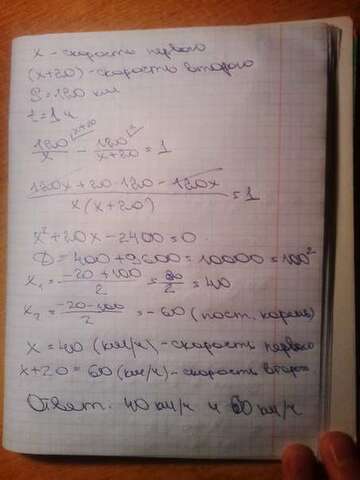 x - скорость первого
(x+20) - скорость второго
S = 120 км
t = 1 ч
120/x \x+20 - 120/x+20 \x = 1
120x + 20·120 - 120x / x(x+20) = 1
x² + 20x - 2400 = 0
D = 400 + 9600 = 10000 = 100²
x₁ = -20+100 / 2 = 80/2 = 40
x₂ = -20-100 / 2 = -60 (пост. корень)
x = 40 (км/ч) - скорость первого
x+20 = 60 (км/ч) - скорость второг
Ответ. 40 км/ч и 60 км/ч